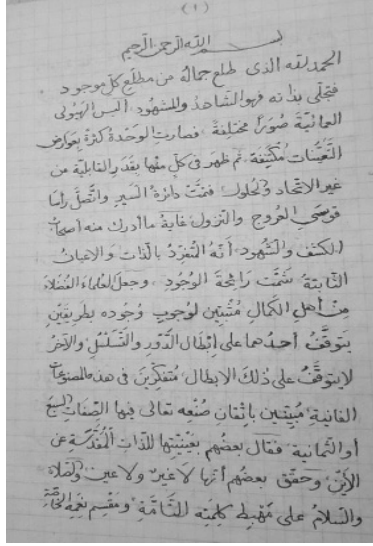 (١)
بسم الله الرحمن الرحيم
الحمد لله الذى طلع جماله من مطلع كل موجود
فتجلّى بذاته فهو الشاهد والمشهود ألبس الهيولى
العمائيّة صُوَرًا مختلفة فصارت الوحدة كثرةً بعوارض
التعيّنات مُكيّفة ثم ظهر فى كلّ منها بقدر القابليّة من
غير الاتحاد والحلول فتمّت دائرة السير واتّصل رأسا
قوسى العروج والنزول غاية ما أدرك منه أصحاب
الكشف والشهود أنّه التفرّد بالذات والاعيان
الثابتة شمّت رائحة الوجود وجعل العلماء الفضلاء
من أهل الكمال مُثبتين لوجوب وُجوده بطريقين
يتوقّف أحدهما على إبطال الدّور والتّسلسل والآخر
لا يتوقّف على ذلك الابطال مُتفكّرين فى هذه المصنوعات
الفانية مُبيّنين باتقان صُنعه تعالى فيها الصّفات السبع
أو الثمانية فقال بعضهم بعينيّتها للذات المُقدّسة عن
الأين وحقّق بعضهم أنّها لا غيرٌ ولا عين والصّلاة
والسّلام على مَهبِط كلمته التّامّة ومقسم نعمه الخاصّة